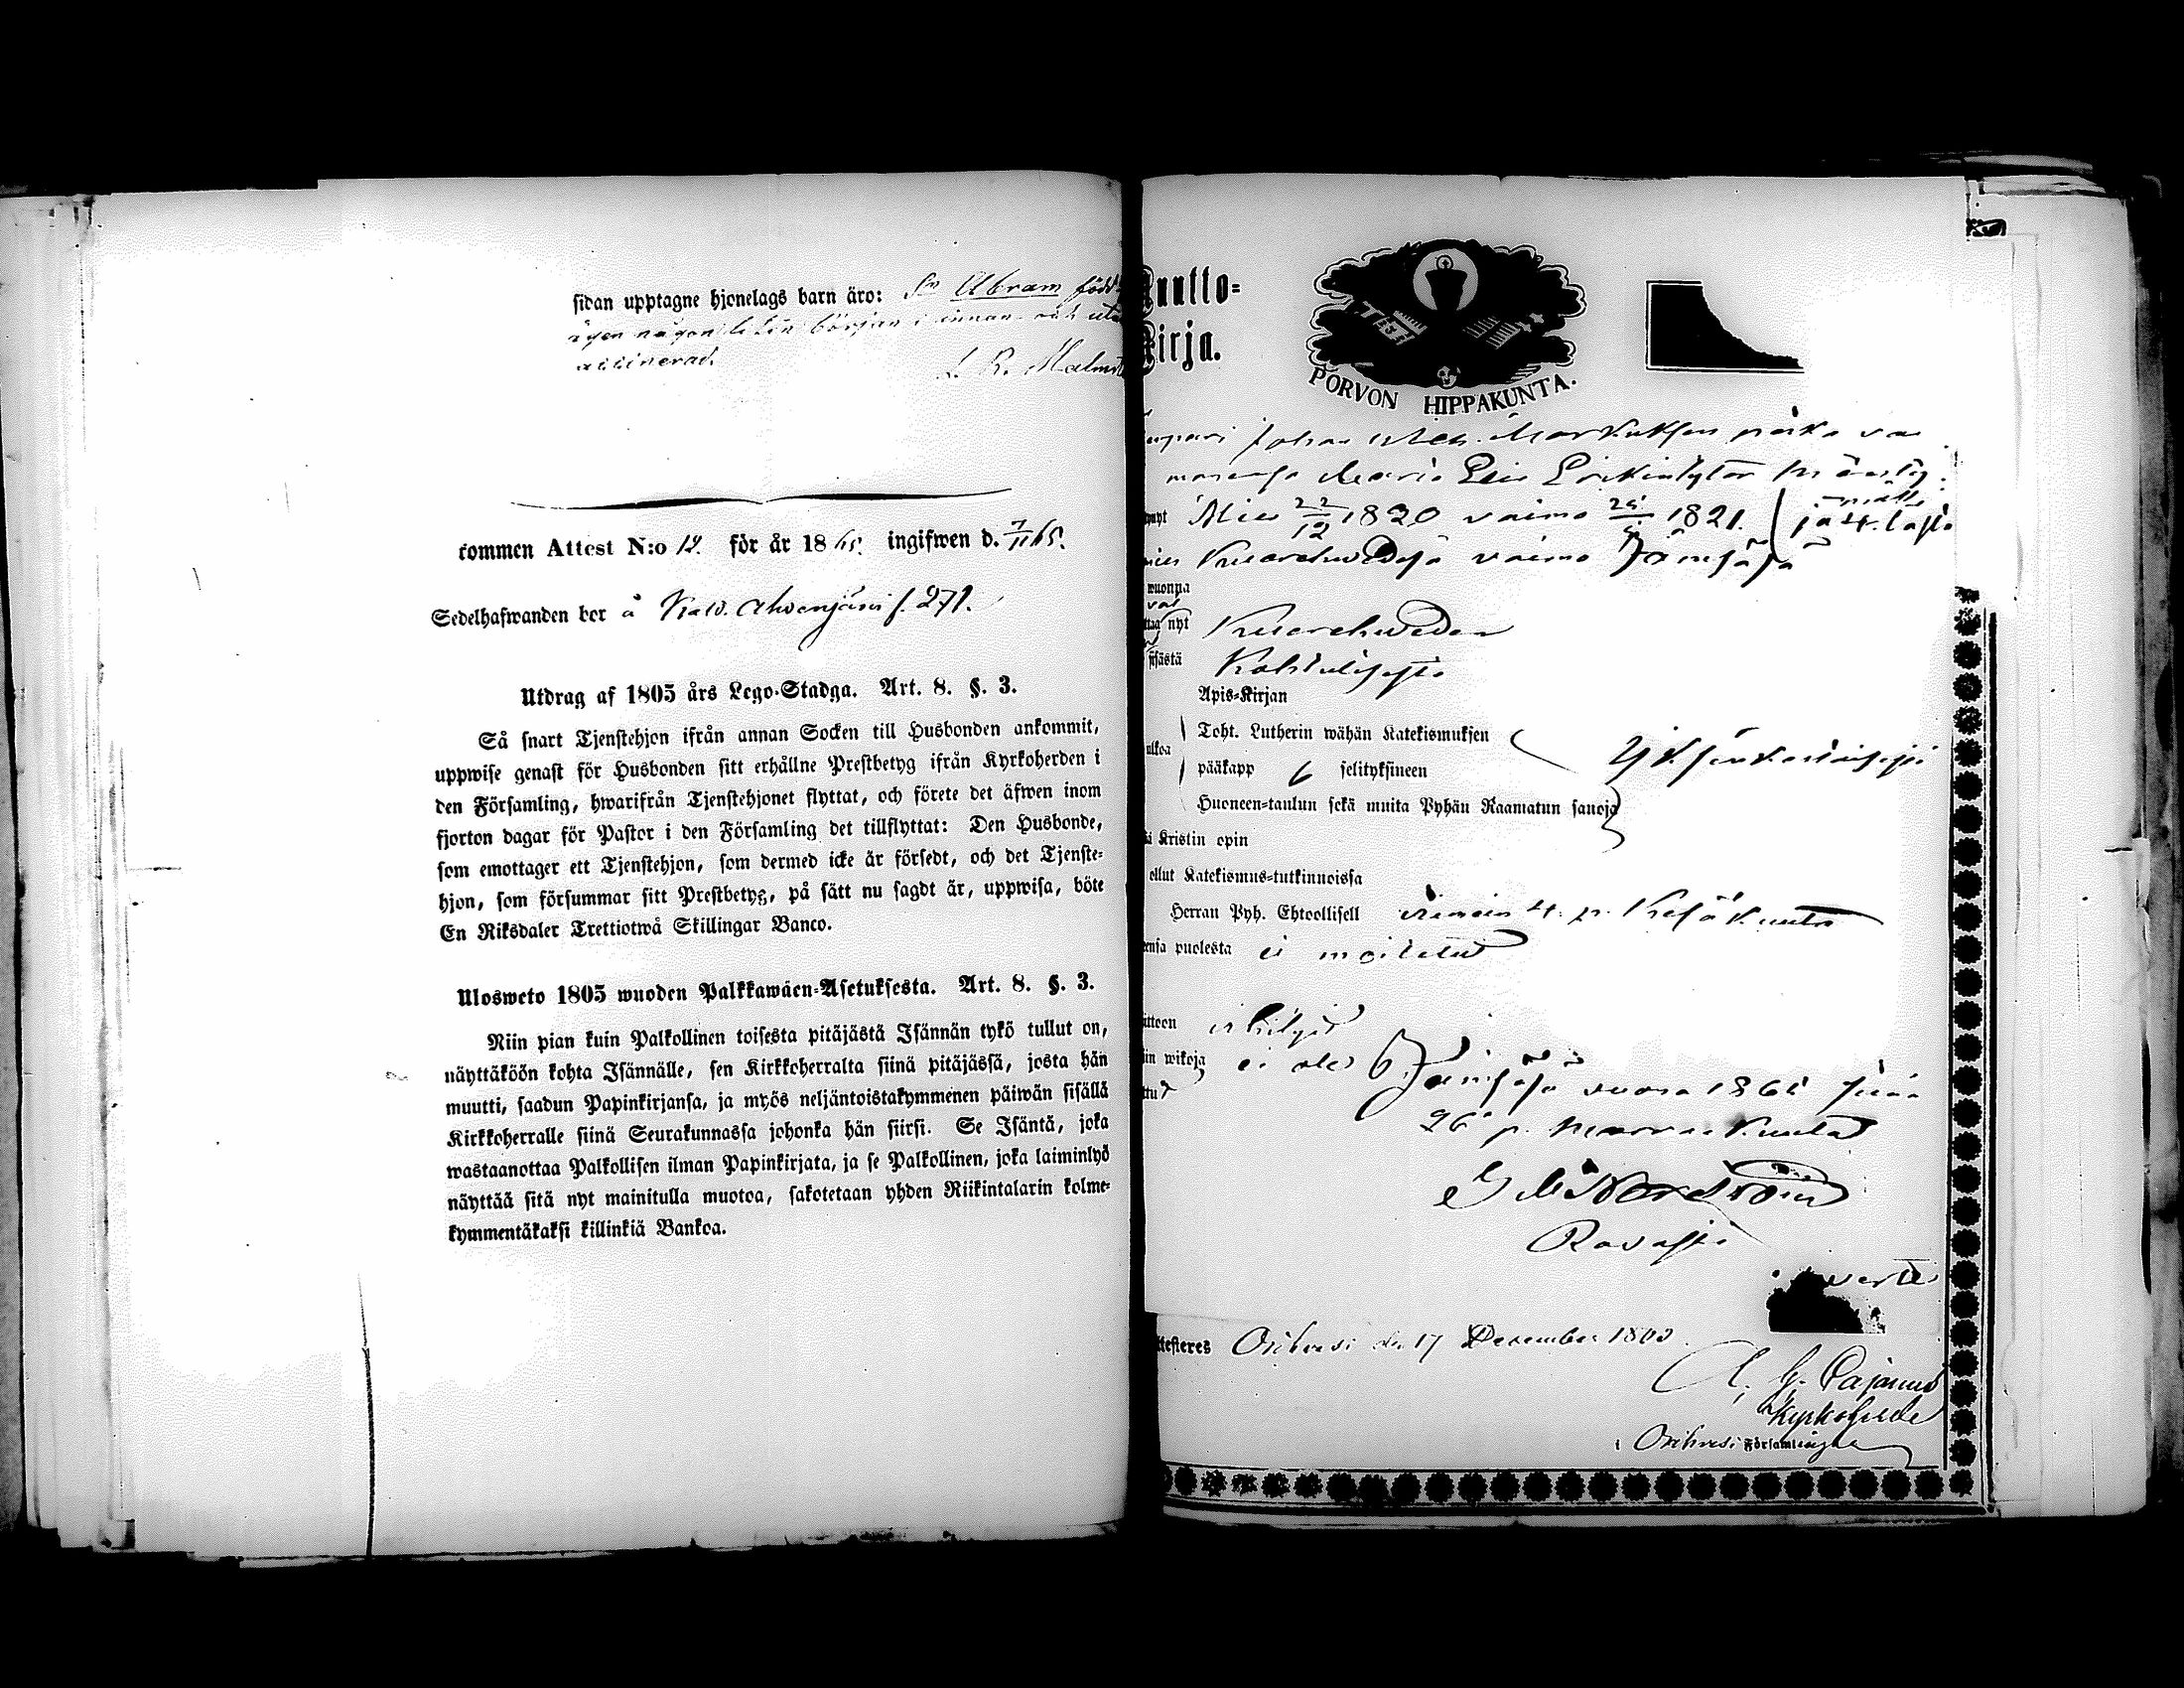 sidan upptagne hjonelags barn äro: Sn Abram född
egen någon liten början i innan- och uta
attinerad.
L. R. Malms
kommen Attest N:o 12. för år 1865. ingifwen d. 7/11 65.
Sedelhafwanden bor å Kald. Ahvenjärvi f. 271.
Utdrag af 1805 års Lego-Stadga. Art. 8. §. 3.
Så snart Tjenstehjon ifrån annan Socken till Husbonden ankommit,
uppwise genast för Husbonden sitt erhållne Prestbetyg ifrån Kyrkoherden i
den Församling, hwarifrån Tjenstehjonet flyttat, och förete det äfwen inom
fjorton dagar för Pastor i den Församling det tillflyttat: Den Husbonde,
som emottager ett Tjenstehjon, som dermed icke är försedt, och det Tjenste-
hjon, som försummar sitt Prestbetyg, på sätt nu sagdt är, uppwisa, böte
En Riksdaler Trettiotwå Skillingar Banco.
Ulosweto 1805 wuoden Palkkawäen-Asetuksesta. Art. 8. §. 3.
Niin pian kuin Palkollinen toisesta pitäjästä Isännän tykö tullut on,
näyttäköön kohta Isännälle, sen Kirkkoherralta siinä pitäjässä, josta hän
muutti, saadun Papinkirjansa, ja myös neljäntoistakymmenen päiwän sisällä
Kirkkoherralle siinä Seurakunnassa johonka hän siirsi. Se Isäntä, joka
wastaanottaa Palkollisen ilman Papinkirjata, ja se Palkollinen, joka laiminlyö
näyttää sitä nyt mainitulla muotoa, sakotetaan yhden Riikintalarin kolme-
kymmentäkaksi killinkiä Bankoa.
uutto-
irja.
PORVON HIPPAKUNTA.
Johan Markuksen poika va
Maria Erikintytär
nyt Mies 22/12 1820 vaimo 25 1821. ja 4. lasta
mies Kuorehwedesä vaimo Jämsäsä
wuonna
nyt Kuorehweden
sisästä Kohtulisesti
Apis-Kirjan
ulkoa Toht. Lutherin wähän Katekismuksen
pääkapp 6 selityksineen Yksinkertaisesti
Huoneen-taulun sekä muita Pyhän Raamatun sanoja
ä Kristin opin
ollut Katekismus-tutkinnoissa
Herran Pyh. Ehtoollisell viimein 4. p. Kesäkuuta
ensa puolesta ei moitettu
itteen esteetyit
in wikoja ei ole
Jämsäsä vuona 1865
26 p. Marraskuuta
Rovasti
verte
ttesteres Orihvesi den 17 December 1865
A. G. Pajanus
Kyrkoherde
i Orihvesi Församling